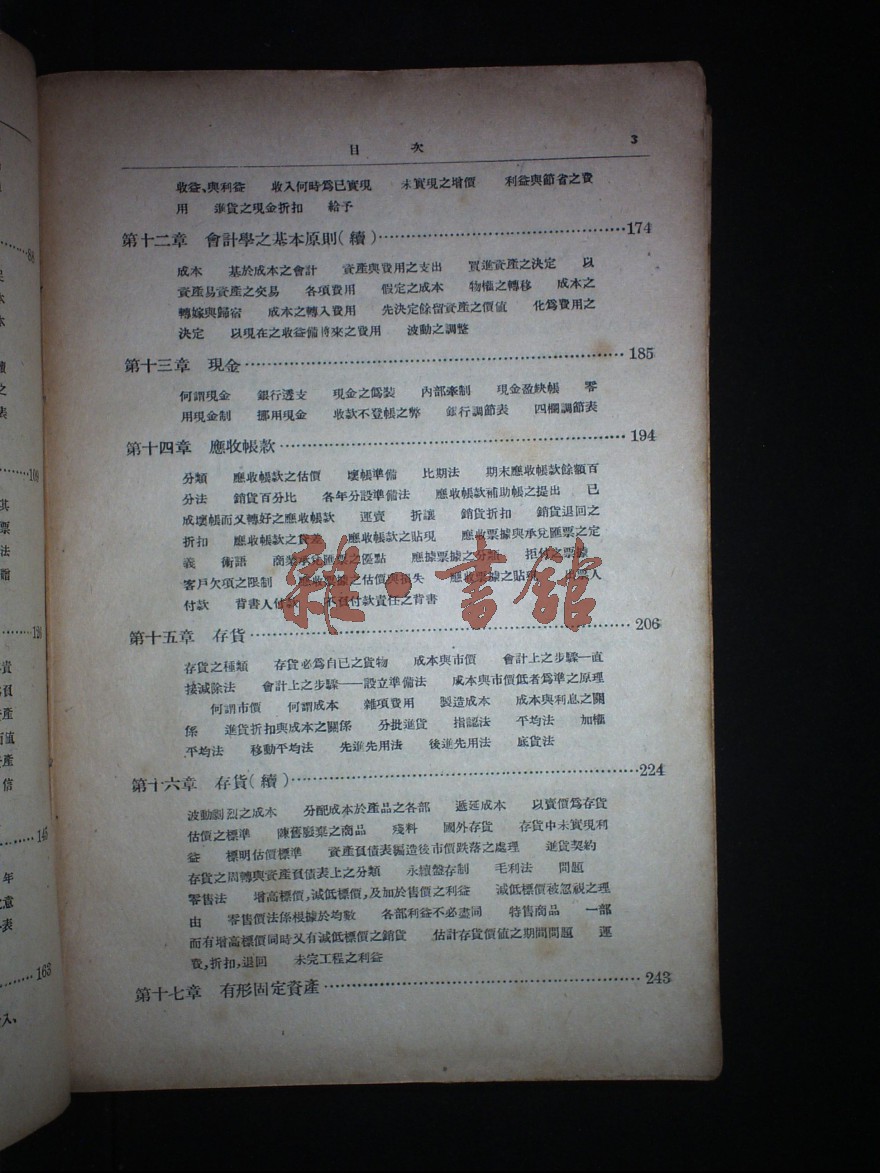 目 次 3
收益、與利益 收入何時爲已實現 未實現之增價 利益與節省之費
用 進貨之現金折扣 給予
第十二章 會計學之基本原則(續)……174
成本 基於成本之會計 資產與費用之支出 買進資產之決定 以
資產易資產之交易 各項費用 假定之成本 物權之轉移 成本之
轉嫁與歸宿 成本之轉入費用 先決定餘留資產之價值 化爲費用之
決定 以現在之收益備將來之費用 波動之調整
第十三章 現金……185
何謂現金 銀行透支 現金之僞裝 內部牽制 現金盈缺帳 零
用現金制 挪用現金 收款不登帳之弊 銀行調節表 四欄調節表
第十四章 應收帳款……194
分類 應收帳款之估價 壞帳準備 比期法 期末應收帳款餘額百
分法 銷貨百分比 各年分設準備法 應收帳款補助帳之提出 已
成壞帳而又轉好之應收帳款 運費 折讓 銷貨折扣 銷貨退回之
折扣 應收帳款之 應收帳款之貼現 應收票據與承兌匯票之定
義 術語 商業承兌匯票之優點 應據票據之分類 拒付之票據
客戶欠項之限制 應收票據之估價與損失 應收票據之貼現 出票人
付款 背書人付款 不負付款責任之背書
第十五章 存貨……206
存貨之種類 存貨必爲自已之貨物 成本與市價 會計上之步驟—直
接減除法 會計上之步驟——設立準備法 成本與市價低者爲準之原理
何謂市價 何謂成本 雜項費用 製造成本 成本與利息之關
係 進貨折扣與成本之關係 分批進貨 指認法 平均法 加權
平均法 移動平均法 先進先用法 後進先用法 底貨法
第十六章 存貨(續)……224
波動劇烈之成本 分配成本於產品之各部 遞延成本 以賣價爲存貨
估價之標準 陳舊廢棄之商品 殘料 國外存貨 存貨中未實現利
益 標明估價標準 資產負債表編造後市價跌落之處理 進貨契約
存貨之周轉與資產負債表上之分類 永續盤存制 毛利法 問題
零售法 增高標價,減低標價,及加於售價之利益 減低標價被忽視之理
由 零售價法係根據於均數 各部利益不必盡同 特售商品 一部
而有增高標價同時又有減低標價之銷貨 估計存貨價值之期間問題 運
費,折扣,退回 未完工程之利益
第十七章 有形固定資產……243
雜·書館
163